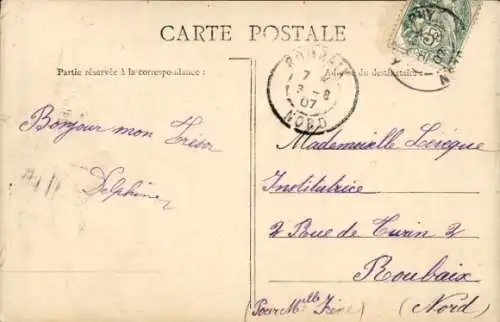 CARTE POSTALE
Partie réservée à la correspondance :
Adresse du destinataire :
ROUBAIX
7
3 - 8
07
NORD
Bonjour mon Trésor
Delphine
Mademoiselle Levêque
Institutrice
2 Rue de Turin 2
Roubaix
(Pour Mlle Irène)
(Nord)